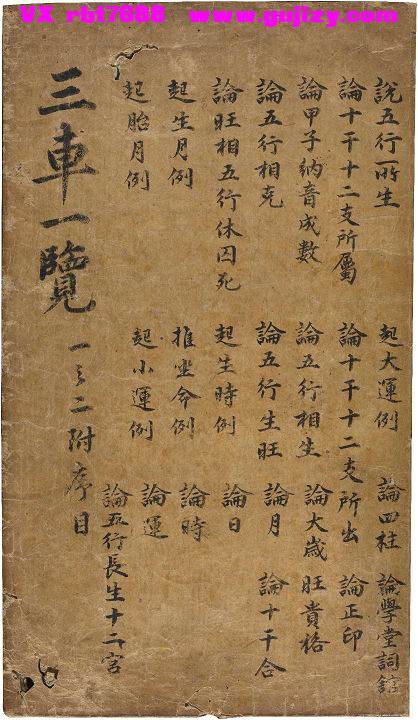 VX rbt7688 www.gujizy.com
說五行所生 起大運例 論四柱 論學堂詞舘
論十干十二支所屬 論十干十二支所出 論正印
論甲子納音成數 論五行相生 論大歲 旺貴格
論五行相克 論五行生旺 論月 論十干合
論旺相五行休囚死 起生時例 論日
起生月例 推坐命例 論時
起胎月例 起小運例 論運
論五行長生十二宮
三車一覽 一之二附序目